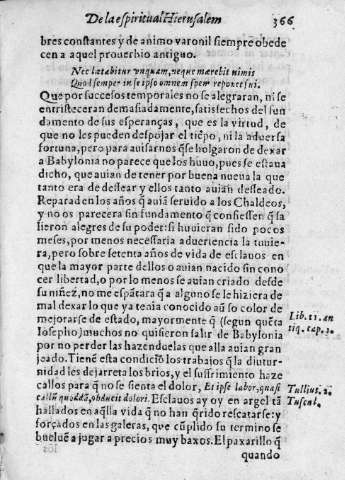 De la espiritual Hierusalem 366
bres constantes y de animo varonil siempre obede
cen a aquel prouerbio antiguo.
Nec lætabitur vnquam, neque mærebit nimis
Quod semper in se ipso omnem spem reponet sui.
Que por successos temporales no se alegraran, ni se
entristeceran demasiadamente, satisfechos del fun
damento de sus esperanças, que es la virtud, de
que no les pueden despojar el tiẽpo, ni la aduersa
fortuna, pero para auisarnos q̃ se holgaron de dexar
a Babylonia no parece que los huuo, pues se estaua
dicho, que auian de tener por buena nueua la que
tanto era de dessear y ellos tanto auian desseado.
Repara den los años q̃ auiã seruido a los Chaldeos,
y no os parecera sin fundamento q̃ confiessen q̃ sa
lieron alegres de su poder: si huuieran sido pocos
meses, por menos necessaria aduertencia la tuuie-
ra, pero sobre setenta años de vida de esclauos en
que la mayor parte dellos o auian nacido sin cono
cer libertad, o por lo menos se auian criado desde
su niñez, no me espãtara q̃ a alguno se le hiziera de
mal dexar lo que ya tenia conocido aũ so color de
mejorarse de estado, mayormente q̃ (segun quẽta
Iosepho) muchos no quisieron salir de Babylonia
por no perder las hazenduelas que alla auian gran
jeado. Tienẽ esta condiciõ los trabajos q̃ la diutur-
nidad les dejarreta los brios, y el suffrimiento haze
callos para q̃ no se sienta el dolor, Et ipse labor, quasi
callũ quoddã, obducit dolori. Esclauos ay oy en argel tã
hallados en aq̃lla vida q̃ no han q̃rido rescatarse: y
forçados en las galeras, que cũplido su termino se
bueluẽ a jugar a precios muy baxos. El paxarillo q̃
quando
Lib. 11. an
tiq. cap. 3.
Tullius. 2.
Tuscul.